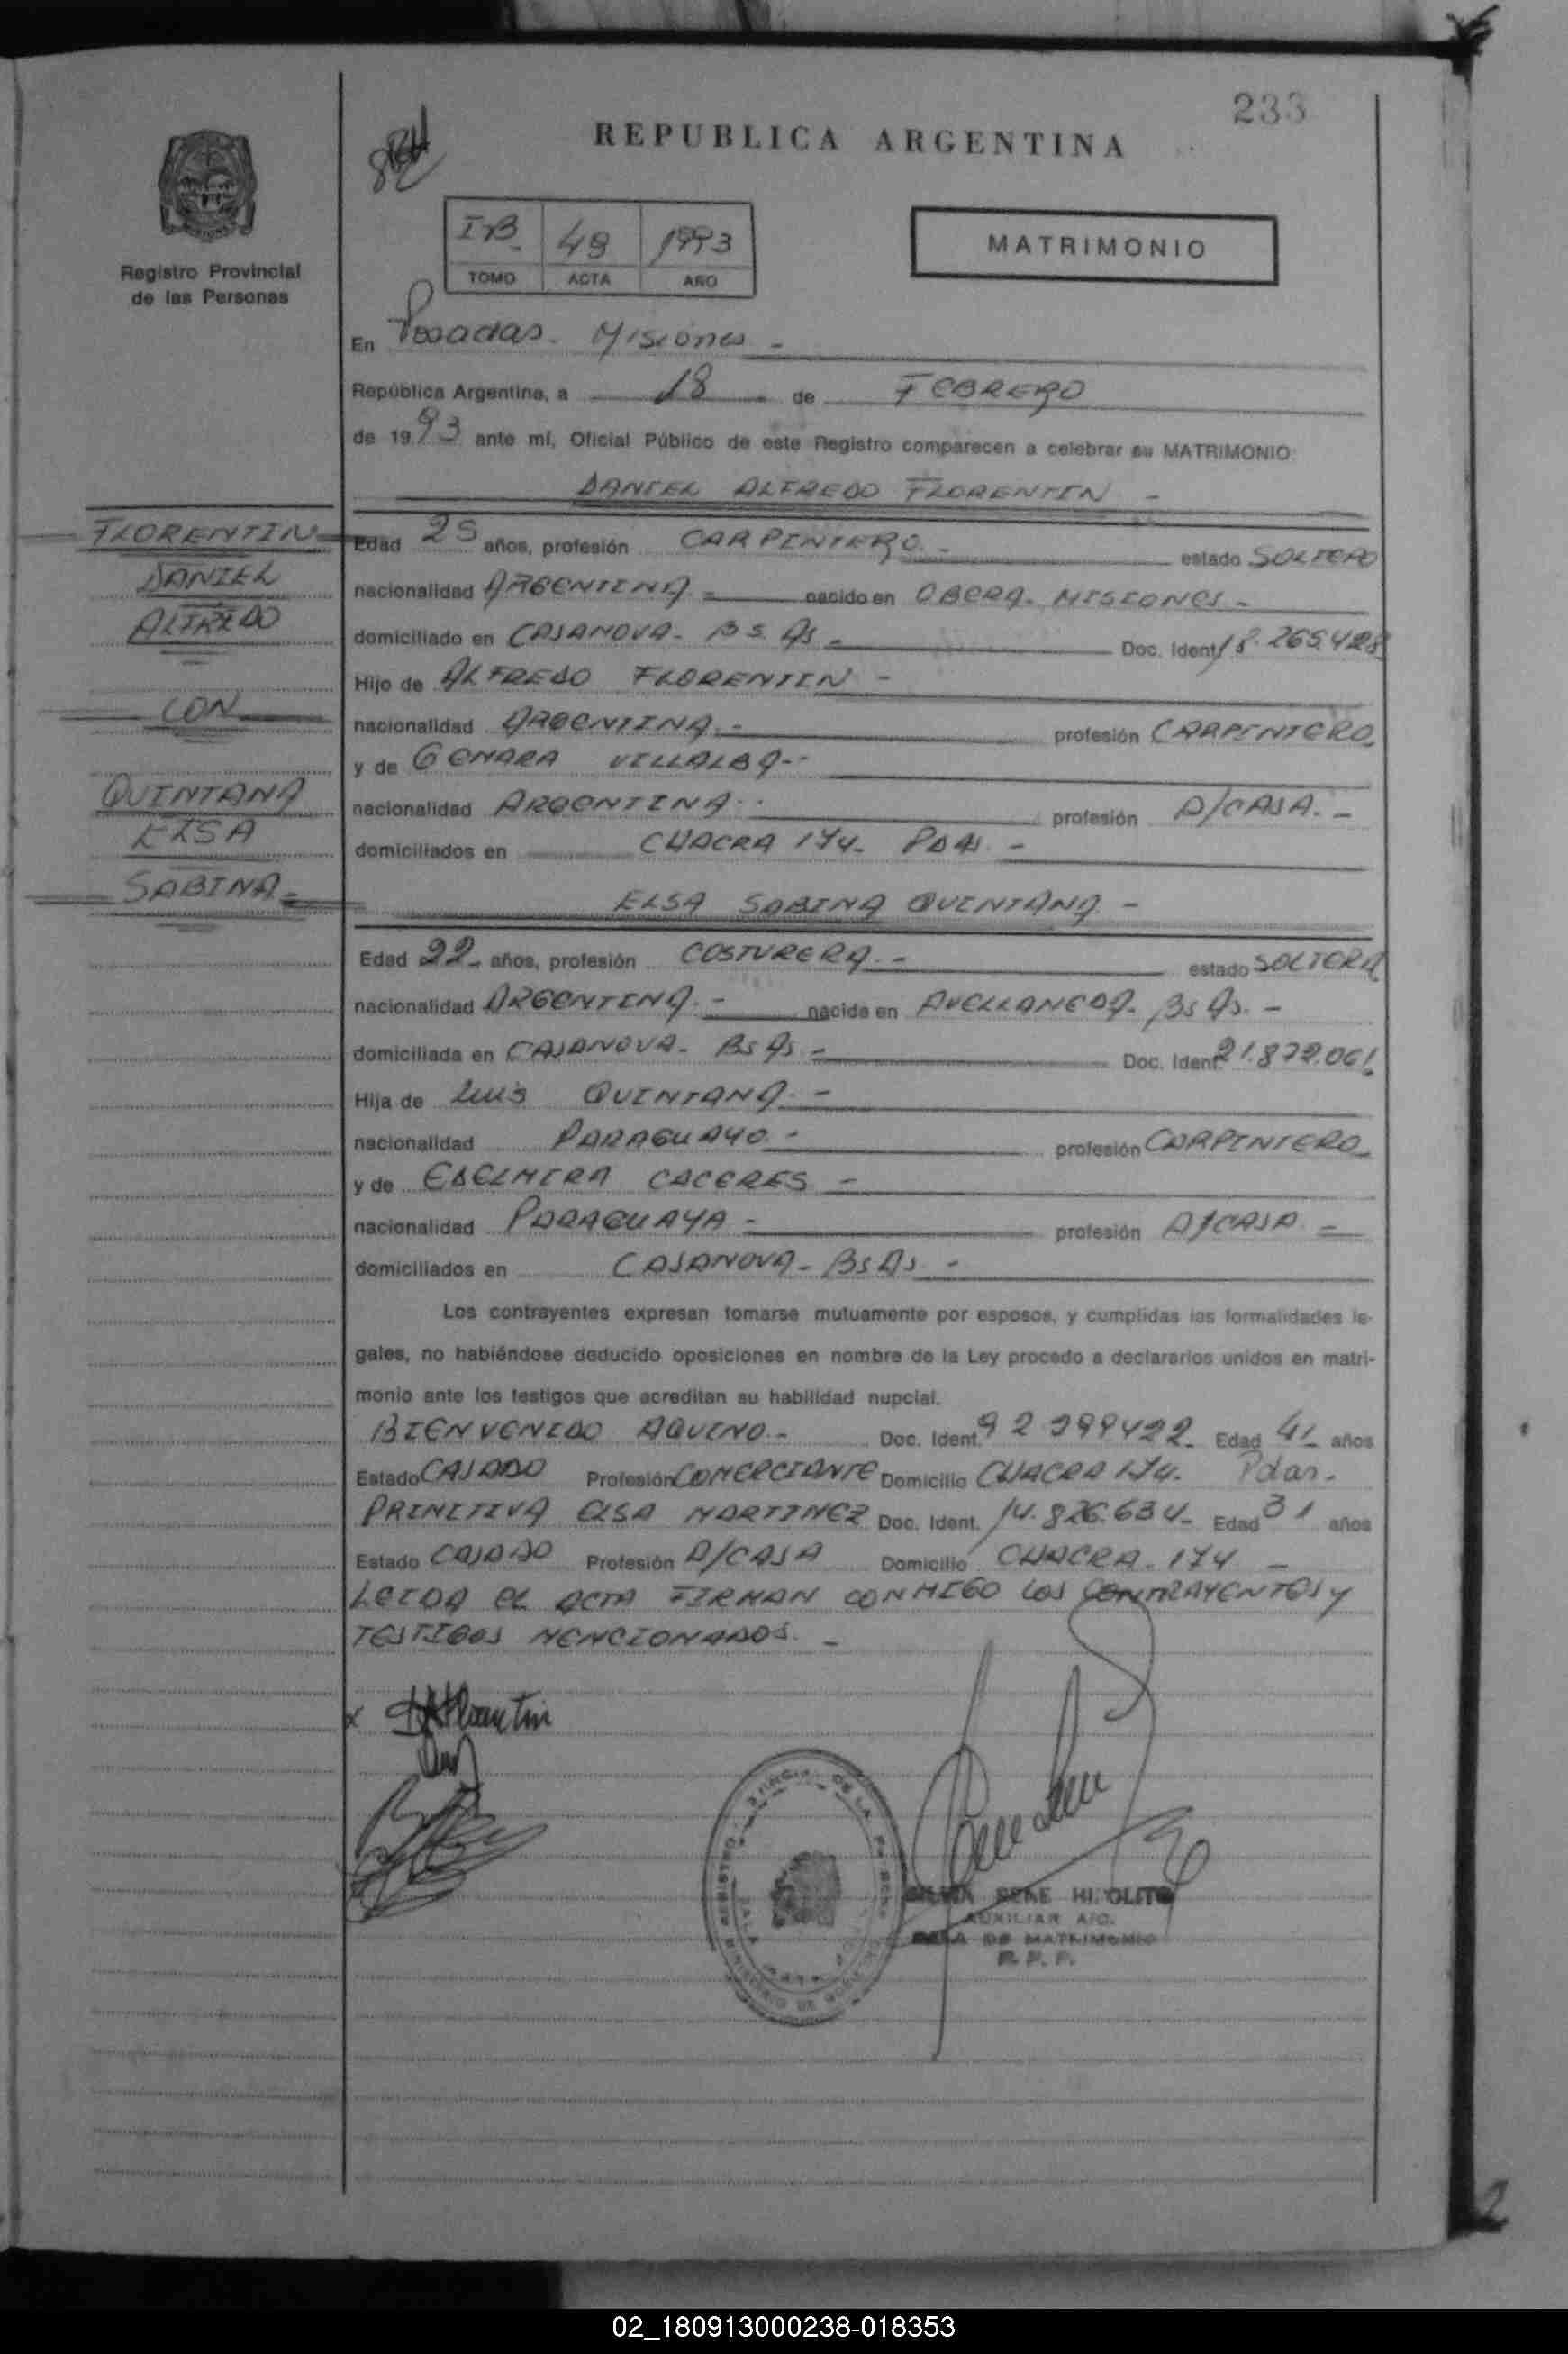 233
REPUBLICA ARGENTINA
Registro Provincial
de las Personas
48 1993
TOMO ACTA AÑO
MATRIMONIO
En Posadas - Misiones -
República Argentina, a 18 de FEBRERO
de 1993 ante mí, Oficial Público de este Registro comparecen a celebrar su MATRIMONIO:
DANIEL ALFREDO FLORENTIN -
FLORENTIN
DANIEL
ALFREDO
CON
QUINTANA
ELSA
SABINA
Edad 25 años, profesión CARPINTERO - estado SOLTERO
nacionalidad ARGENTINA - nacido en OBERA - MISIONES -
domiciliado en CASANOVA - BS. AS - Doc. Ident. 18.265.428
Hijo de ALFREDO FLORENTIN -
nacionalidad ARGENTINA - profesión CARPINTERO
y de GENARA VILLALBA -
nacionalidad ARGENTINA - profesión A/CASA. -
domiciliados en CHACRA 174 - PDAS. -
ELSA SABINA QUINTANA -
Edad 22 años, profesión COSTURERA - estado SOLTERA
nacionalidad ARGENTINA - nacida en AVELLANEDA - BS AS. -
domiciliada en CASANOVA - BS AS - Doc. Ident. 21.872.061
Hija de LUIS QUINTANA -
nacionalidad PARAGUAYO - profesión CARPINTERO
y de EDELMIRA CACERES -
nacionalidad PARAGUAYA - profesión A/CASA -
domiciliados en CASANOVA - BS AS -
Los contrayentes expresan tomarse mutuamente por esposos, y cumplidas las formalidades le-
gales, no habiéndose deducido oposiciones en nombre de la Ley procedo a declararlos unidos en matri-
monio ante los testigos que acreditan su habilidad nupcial.
BIENVENIDO AQUINO - Doc. Ident. Edad 41 años
Estado CASADO Profesión COMERCIANTE Domicilio CHACRA 174. Pdas.
PRIMITIVA ELSA MARTINEZ Doc. Ident. 14.826.634 - Edad 31 años
Estado CASADO Profesión A/CASA Domicilio CHACRA - 174 -
LEIDA EL ACTA FIRMAN CONMIGO LOS CONTRAYENTES Y
TESTIGOS MENCIONADOS. -
SILVA RENE HIPOLITO
AUXILIAR A/C.
SALA DE MATRIMONIO
R. P. P.
02_180913000238-018353